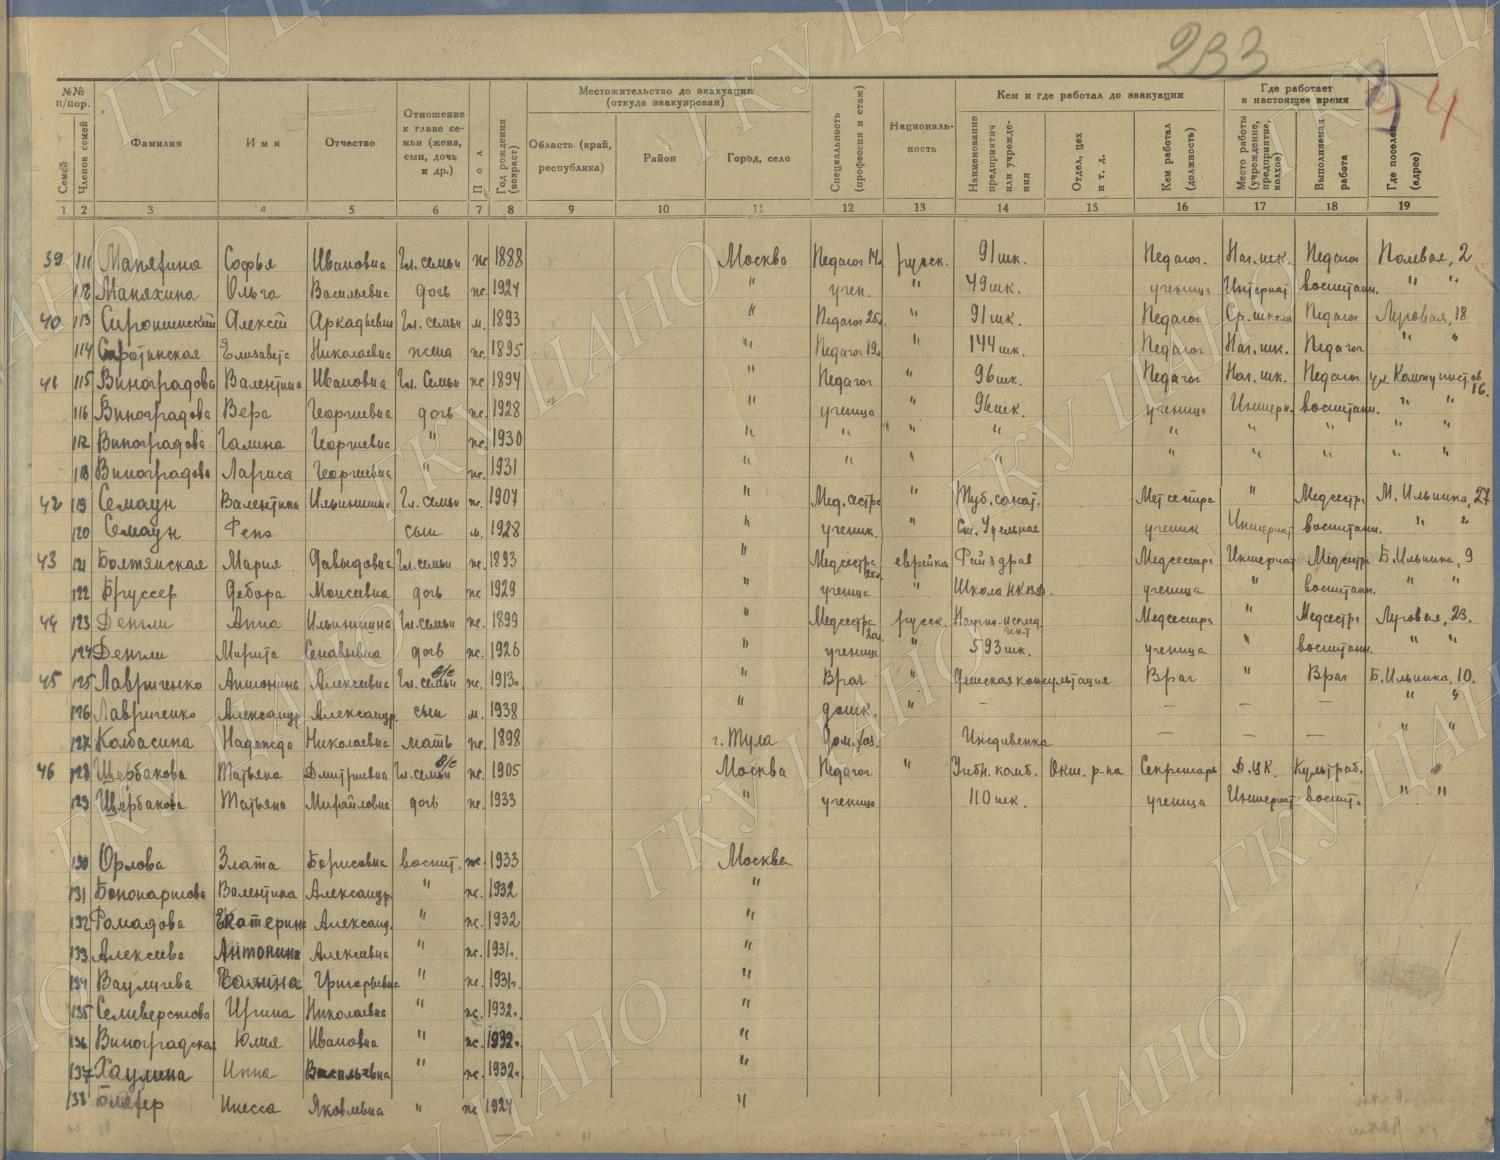 233
4
№№ п/пор.
Семей
Членов семей
Фамилия
Имя
Отчество
Отношение к главе семьи (жена, сын, дочь и др.)
Пол
Год рождения (возраст)
Местожительство до эвакуации (откуда эвакуирован)
Область (край, республика)
Район
Город, село
Специальность (профессия и стаж)
Национальность
Кем и где работал до эвакуации
Наименование предприятия или учреждения
Отдел, цех и т. д.
Кем работал (должность)
Где работает в настоящее время
Место работы (учреждение, предприятие, колхоз)
Выполняемая работа
Где поселен (адрес)
1 2 3 4 5 6 7 8 9 10 11 12 13 14 15 16 17 18 19
39 111 Софья Ивановна Гл. семьи ж 1888 Москва Педагог русск. 91 шк. Педагог. Нач. шк. Педагог Полевая, 2
112 Маняхина Ольга Васильевна дочь ж. 1924 " учен. " 49 шк. ученица Интернат воспитанн. " "
40 113 Алексей Аркадьевич Гл. семьи м. 1893 " Педагог " 91 шк. Педагог Ср. школа Педагог Луговая, 18
114 Елизавета Николаевна жена ж. 1895 " Педагог " 144 шк. Педагог Нач. шк. Педагог " "
41 115 Виноградова Валентина Ивановна Гл. семьи ж 1894 " Педагог " 96 шк. Педагог Нач. шк. Педагог ул. Коммунистов 16.
116 Виноградова Вера Георгиевна дочь ж. 1928 " ученица " 96 шк. ученица Интерн. воспитанн. " "
117 Виноградова Галина Георгиевна " ж. 1930 " " " " " " " " "
118 Виноградова Лариса Георгиевна " ж. 1931 " " " " " " " " "
42 119 Семаун Валентина Ильинишна Гл. семьи ж. 1907 " Мед. сестра " Туб. санат. Медсестра " Медсестр. М. Ильинка, 27
120 Семаун сын м. 1928 " ученик. " Ст. Удельная ученик Интернат воспитанн. " "
43 121 Болтянская Мария Давыдовна Гл. семьи ж 1893 " Медсестра еврейка Райздрав Медсестра Интернат Медсестр. Б. Ильинка, 9
122 Бруссер Дебора Моисеевна дочь ж 1929 " ученица " Школа НКВД. ученица " воспитанн. " "
44 123 Денгли Анна Ильинишна Гл. семьи ж. 1899 " Медсестра русск. Научно-исслед. ин-т Медсестра " Медсестр. Луговая, 23.
124 Денгли дочь ж. 1926 " ученица " 593 шк. ученица " воспитанн. " "
45 125 Лавриченко Антонина Алексеевна Гл. семьи в/с ж. 1913г. " Врач " Детская консультация Врач " Врач Б. Ильинка, 10.
126 Лавриченко Александр Александр. сын м. 1938 " дошк. " — — — — " "
127 Колбасина Надежда Николаевна мать ж. 1898 г. Тула Дом. хоз. Иждивенка — — — " "
46 128 Щербакова Татьяна Дмитриевна Гл. семьи в/с ж. 1905 Москва Педагог " Учебн. комб. Окт. р-на Секретарь Д.Ц.К. Культраб. "
129 Щербакова Татьяна Михайловна дочь ж. 1933 " ученица 110 шк. ученица Интернат воспит. " "
130 Орлова Злата Борисовна воспит. ж. 1933 Москва
131 Валентина Александр. " ж. 1932 "
132 Екатерина Александ. " ж. 1932 "
133 Алексеева Антонина Алексеевна " ж. 1931г. "
134 Галина Григорьевна " ж. 1931г. "
135 Селиверстова Ирина Николаевна " ж. 1932г. "
136 Виноградская Юлия Ивановна " ж. 1932г. "
137 Хаулина Инна Васильевна " ж. 1932г. "
138 Инесса Яковлевна " ж 1927 "
ГКУ ЦАНО